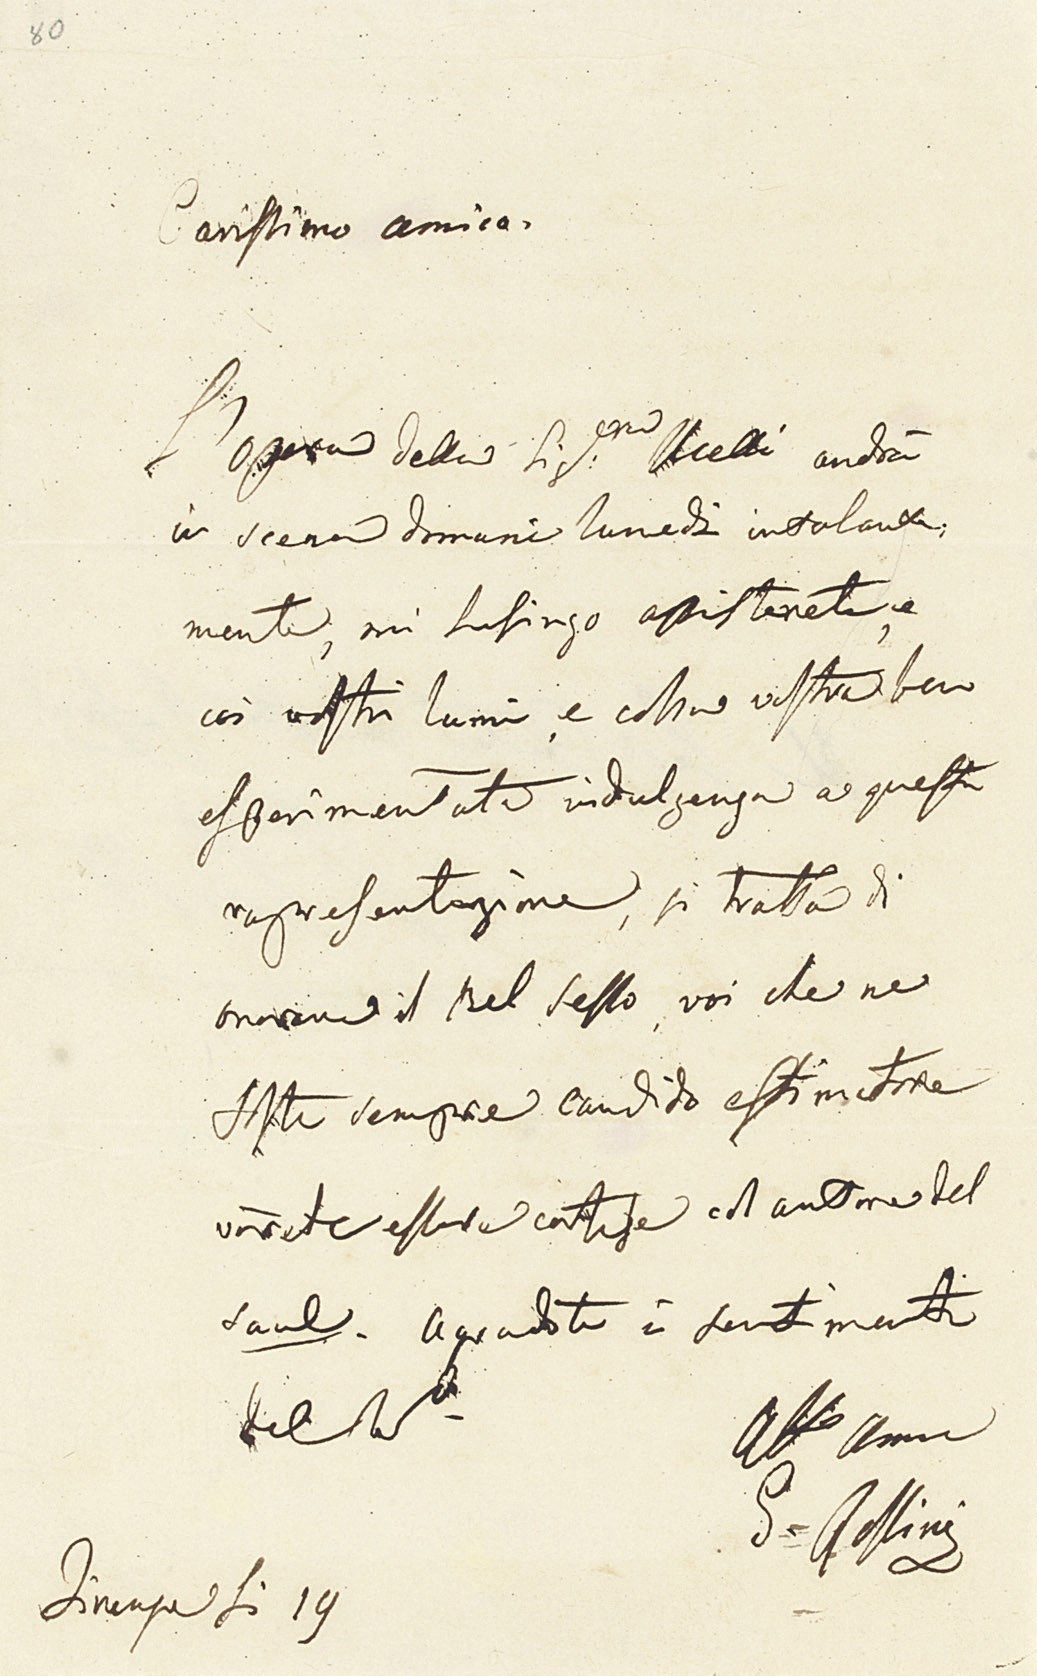 80
Carissimo amico.
L'opera della Sig.era Ucelli andrà
in scena domani lunedì intalante,
mente, mi lusingo assisterete, e
coi vostri lumi, e colla vostra ben
esperimentata indulgenza a questa
rapresentazione, si tratta di
onorare il Bel sesso, voi che ne
foste sempre candido estimatore
vorrete essere cortese col auttore del
saul. Agradite i sentimenti
del Vo.
Affo Amico
G = Rossini
Firenze li 19